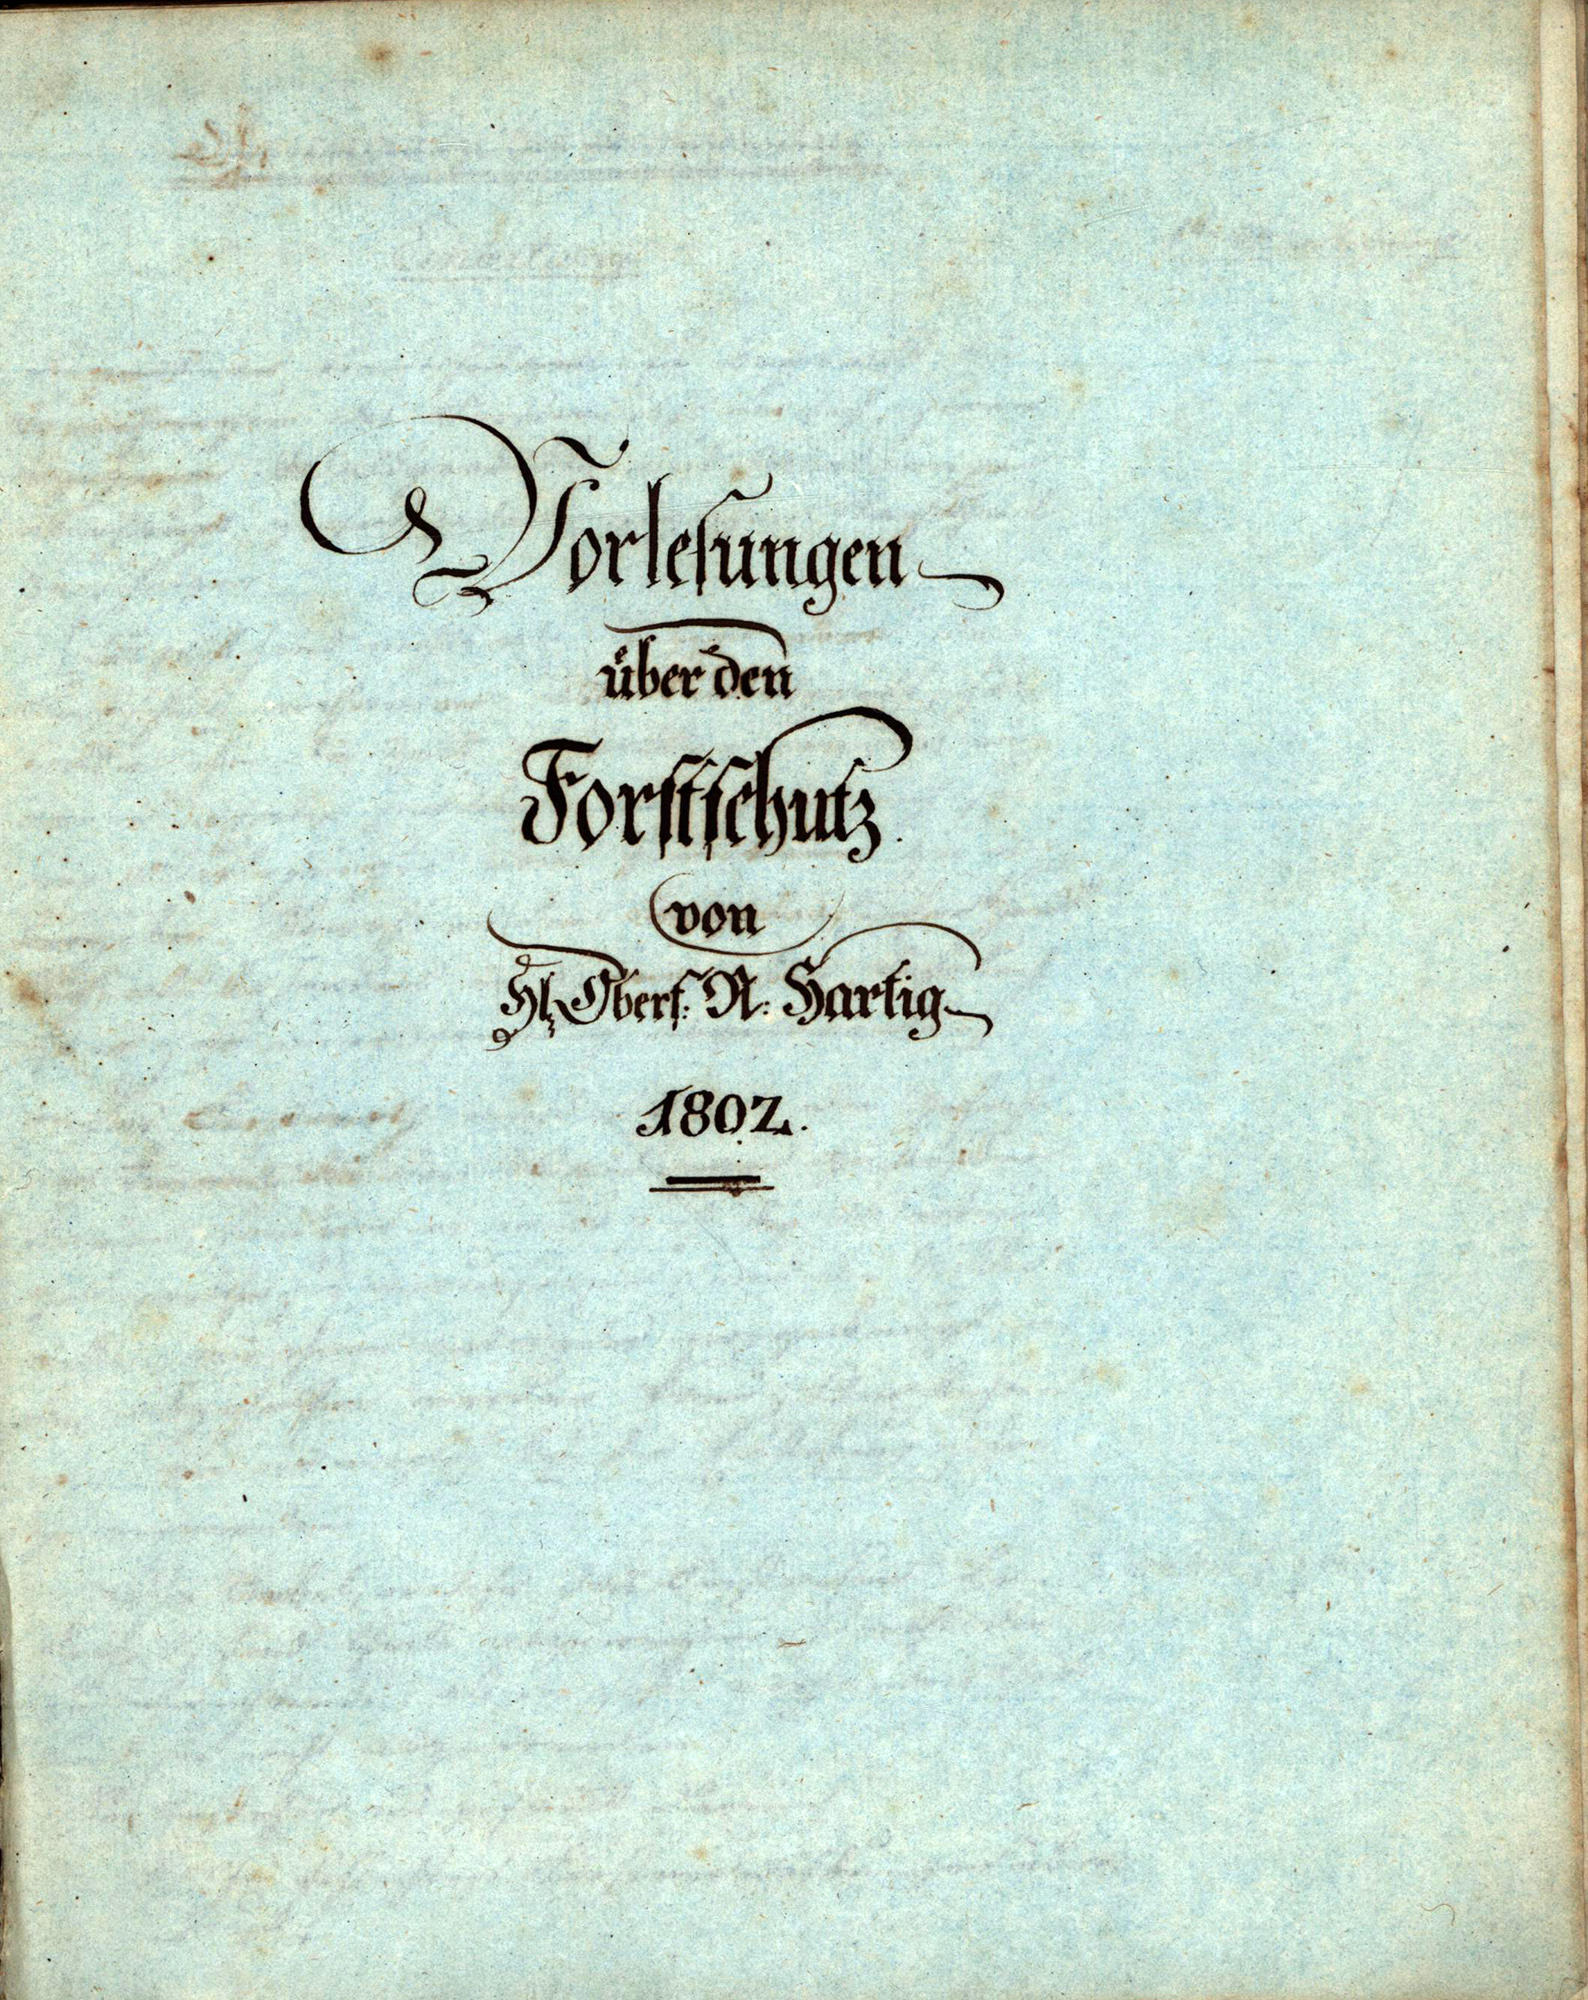 Vorlesungen
über den
Forstschutz.
von
H. Oberf: R: Hartig
1802.